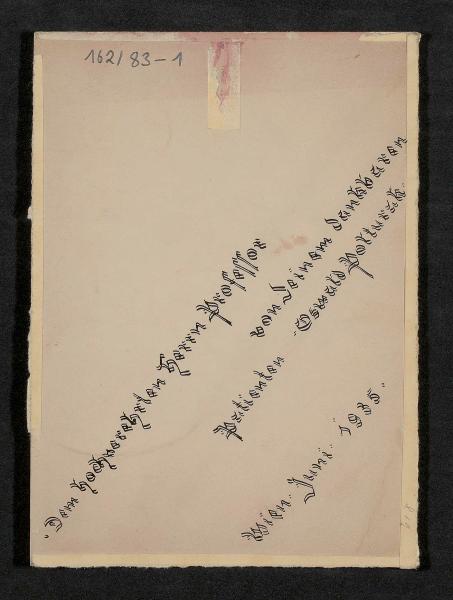 162/83-1
"Dem hochverehrten Herrn Professor
von Seinem dankbaren
Patienten "Oswald
Wien. Juni. 1935."